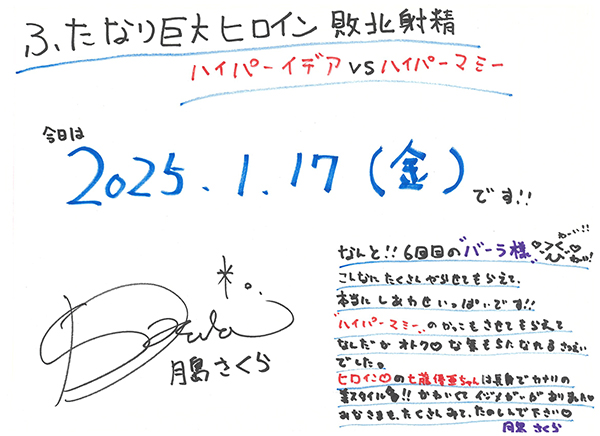 ふたなり巨大ヒロイン 敗北射精
ハイパーイデア vs ハイパーマミー
今日は
2025.1.17(金)です!!
なんと!! 6回目の"バーラ様"
こんなにたくさん出させてもらえて、
本当にしあわせいっぱいです!!
"ハイパーマミー"のかっこもさせてもらえて
なんだかオトク♡な気もちになれるさつえい
でした。
ヒロイン♡の七瀬優亜ちゃんは長身でカナリの
美スタイル!! かわいくてイジメがいがありました♡
みなさまも、たくさんみて、たのしんで下さい♡
月島 さくら
月島さくら